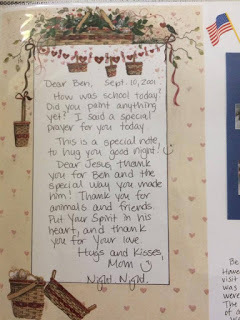 Dear Ben, Sept. 10, 2001
How was school today?
Did you paint anything
yet? I said a special
prayer for you today.
This is a special note
to hug you good night!
Dear Jesus, thank
you for Ben and the
special way you made
him! Thank you for
animals and friends.
Put Your Spirit in his
heart, and thank
you for Your love.
Hugs and Kisses,
Mom
Night Night.
Be
Have
visit
was
were
The